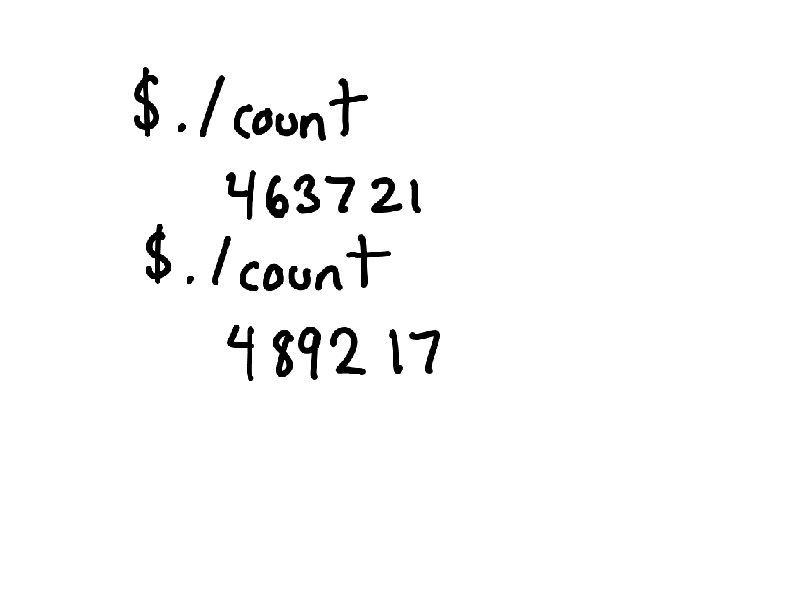 $./count
463721
$./count
489217